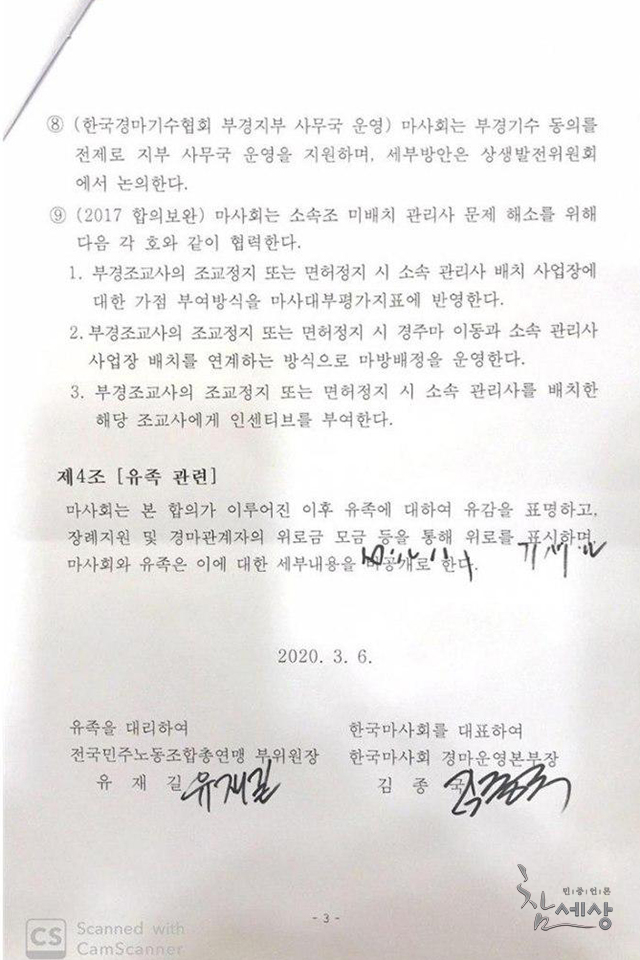 ⑧ (한국경마기수협회 부경지부 사무국 운영) 마사회는 부경기수 동의를
전제로 지부 사무국 운영을 지원하며, 세부방안은 상생발전위원회
에서 논의한다.
⑨ (2017 합의보완) 마사회는 소속조 미배치 관리사 문제 해소를 위해
다음 각 호와 같이 협력한다.
1. 부경조교사의 조교정지 또는 면허정지 시 소속 관리사 배치 사업장에
대한 가점 부여방식을 마사대부평가지표에 반영한다.
2. 부경조교사의 조교정지 또는 면허정지 시 경주마 이동과 소속 관리사
사업장 배치를 연계하는 방식으로 마방배정을 운영한다.
3. 부경조교사의 조교정지 또는 면허정지 시 소속 관리사를 배치한
해당 조교사에게 인센티브를 부여한다.
제4조 [유족 관련]
마사회는 본 합의가 이루어진 이후 유족에 대하여 유감을 표명하고,
장례지원 및 경마관계자의 위로금 모금 등을 통해 위로를 표시하며
마사회와 유족은 이에 대한 세부내용을 비공개로 한다.
2020. 3. 6.
유족을 대리하여
전국민주노동조합총연맹 부위원장
유 재 길 유재길
한국마사회를 대표하여
한국마사회 경마운영본부장
김 종 국
민중언론
참세상
- 3 -
CS Scanned with
CamScanner